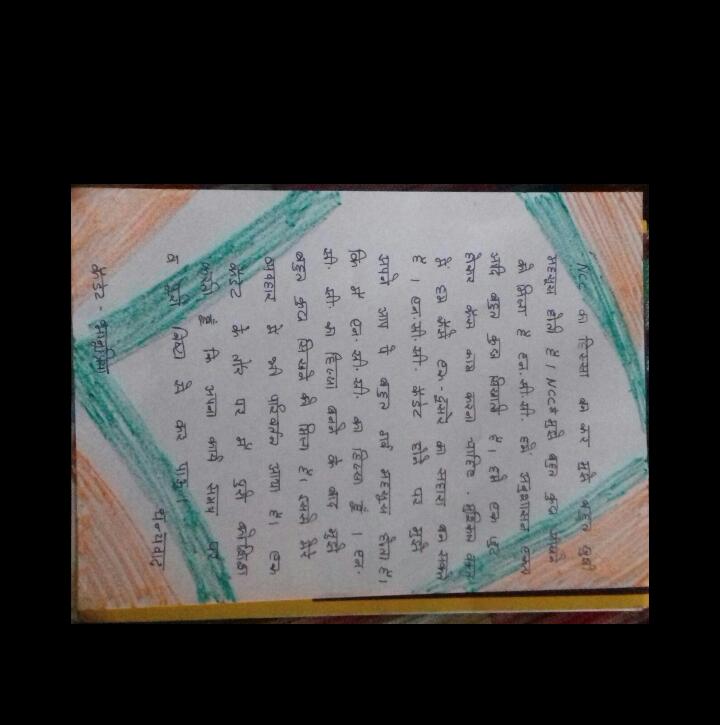 NCC का हिस्सा बन कर मुझे बहुत खुशी
महसूस होती है। NCC से मुझे बहुत कुछ सीखने
को मिला है एन.सी.सी. हमें अनुशासन एकता
आदि बहुत कुछ सिखाती है। हमें एक जुट
होकर कैसे काम करना चाहिए. मुश्किल वक्त
में हम कैसे एक-दूसरे का सहारा बन सकते
है। एन.सी.सी. कैडेट होने पर मुझे
अपने आप पे बहुत गर्व महसूस होता है।
कि मैं एन. सी. सी. का हिस्सा हूँ । एन.
सी. सी. का हिस्सा बनने के बाद मुझे
बहुत कुछ सिखने को मिला है। इससे मेरे
व्यवहार में भी परिवर्तन आया है। एक
कैडेट के तौर पर मैं पूरी कोशिश
करती हूँ कि अपना कार्य समय पर
व पूरी निष्ठा से कर पाऊं।
धन्यवाद
कैडेट -